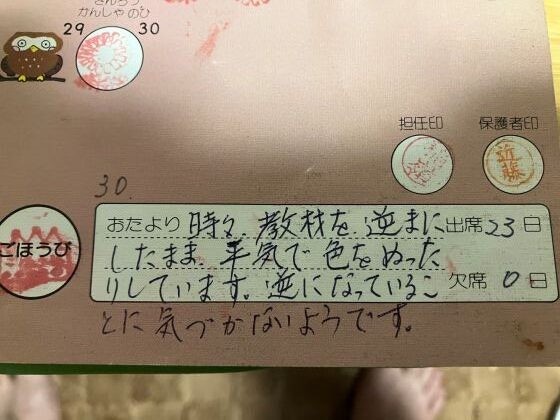 きんろう
かんしゃのひ
29 30
担任印 保護者印
近藤
30.
おたより 時々 教材を 逆まに 出席 23 日
ごほうび したまま 平気で 色をぬった
りしています。逆になっているこ 欠席 0 日
とに気づかないようです。